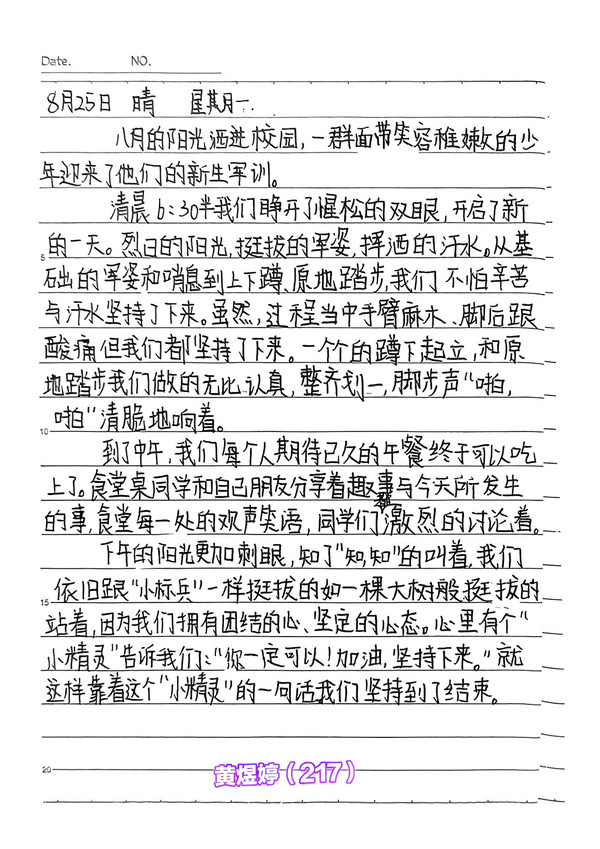 Date. NO.
8月25日 晴 星期一
八月的阳光洒进校园,一群面带笑容稚嫩的少
年迎来了他们的新生军训。
清晨6:30半我们睁开了惺松的双眼,开启了新
5 的一天。烈日的阳光,挺拔的军姿,挥洒的汗水。从基
础的军姿和哨息到上下蹲、原地踏步,我们不怕辛苦
与汗水坚持了下来。虽然,过程当中手臂麻木、脚后跟
酸痛但我们都坚持了下来。一个个的蹲下起立,和原
地踏步我们做的无比认真,整齐划一,脚步声“啪,
10 啪”清脆地响着。
到了中午,我们每个人期待已久的午餐终于可以吃
上了。食堂桌同学和自己朋友分享着趣事与今天所发生
的事,食堂每一处的欢声笑语,同学们激烈的讨论着。
下午的阳光更加刺眼,知了“知,知”的叫着,我们
15 依旧跟“小标兵”一样挺拔的如一棵大树般挺拔的
站着,因为我们拥有团结的心、坚定的心态。心里有个“
小精灵”告诉我们:“你一定可以!加油,坚持下来。”就
这样靠着这个“小精灵”的一句话我们坚持到了结束。
20 黄煜婷(217)